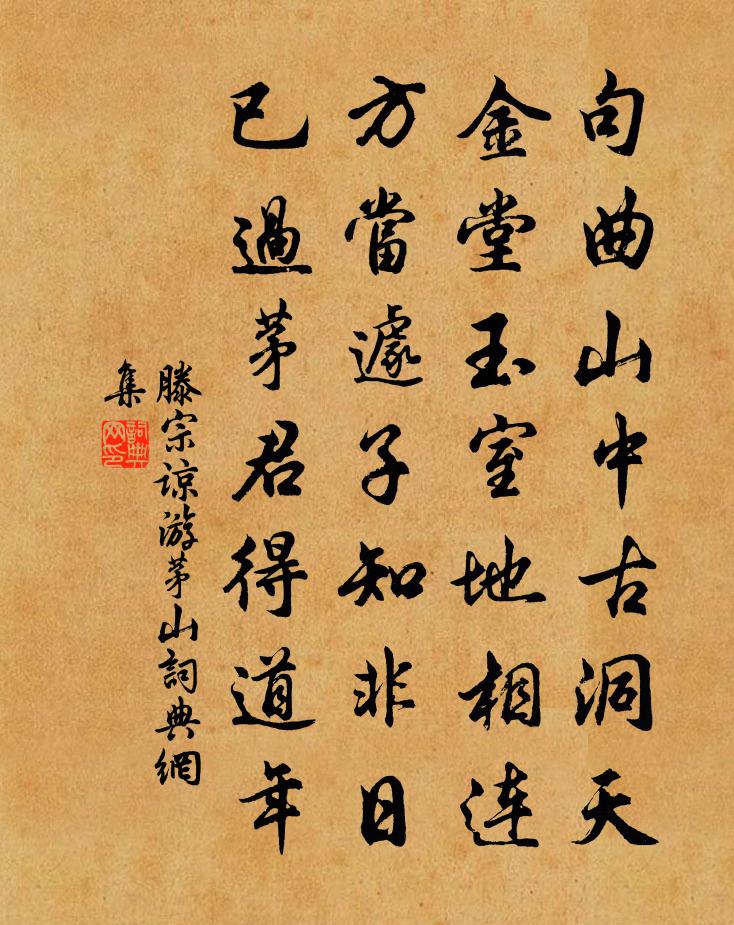 句曲山中古洞天
金堂玉室地相連
方當遽子知非日
已過茅君得道年
滕宗諒游茅山詞典網
集
詞典
网印